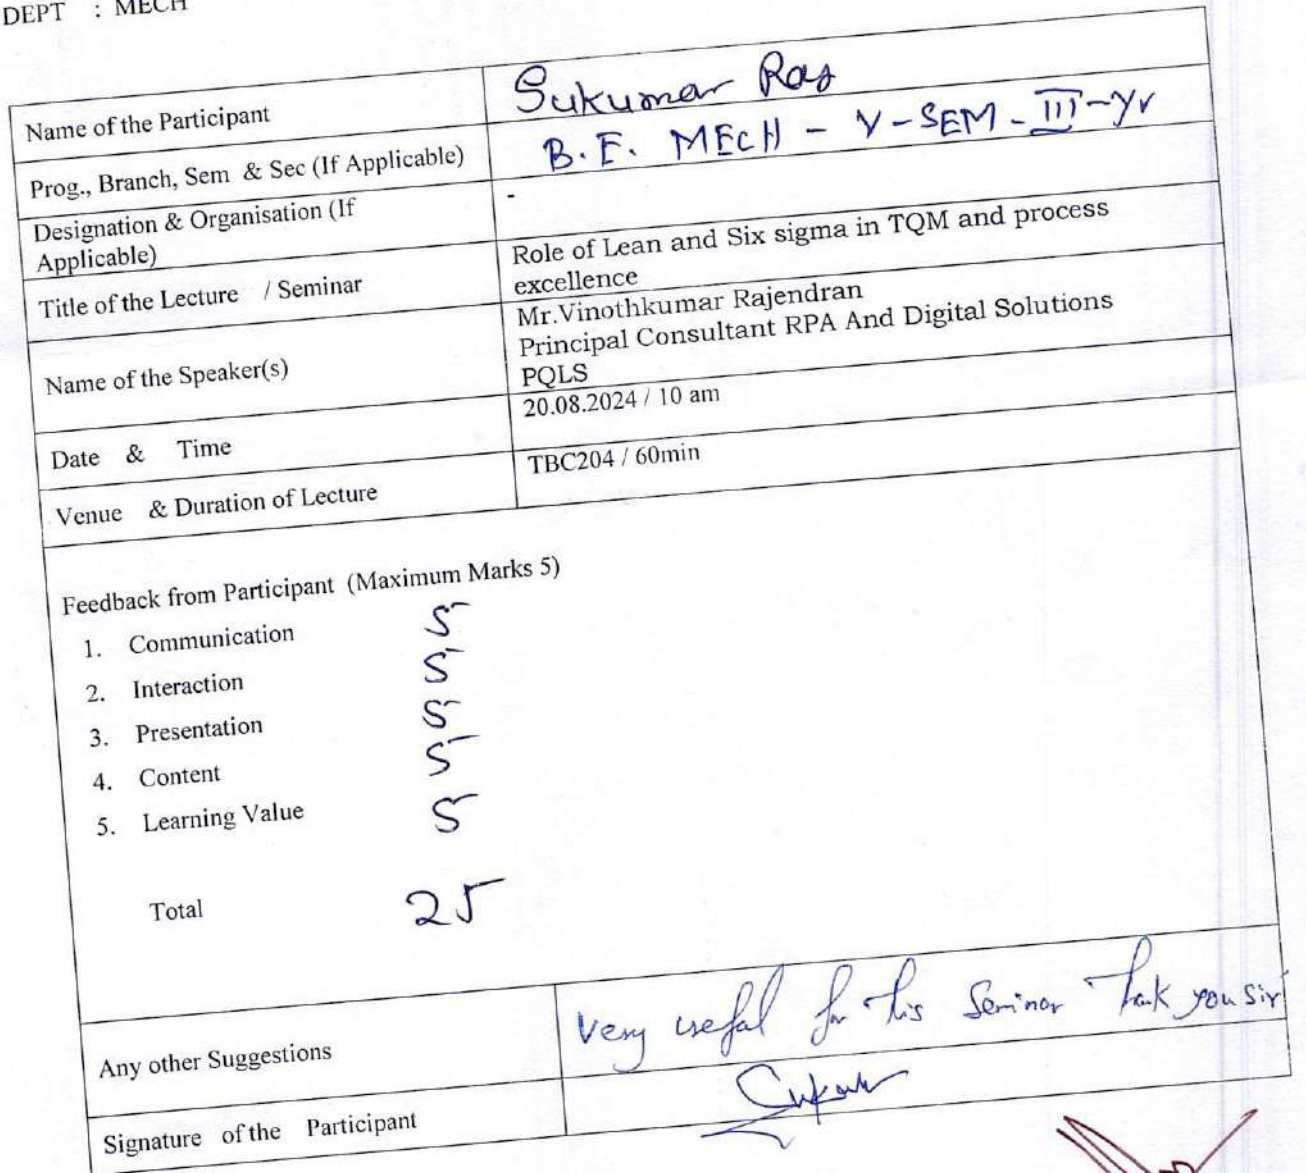 DEPT : MECH
Name of the Participant
Sukumar Roy
Prog., Branch, Sem & Sec (If Applicable)
B.E. MECH - V-SEM - III-Yr
Designation & Organisation (If
Applicable)
-
Title of the Lecture / Seminar
Role of Lean and Six sigma in TQM and process
excellence
Name of the Speaker(s)
Mr.Vinothkumar Rajendran
Principal Consultant RPA And Digital Solutions
PQLS
Date & Time
20.08.2024 / 10 am
Venue & Duration of Lecture
TBC204 / 60min
Feedback from Participant (Maximum Marks 5)
1. Communication 5
2. Interaction 5
3. Presentation 5
4. Content 5
5. Learning Value 5
Total 25
Any other Suggestions
Very useful for this Seminar Thank you Sir
Signature of the Participant